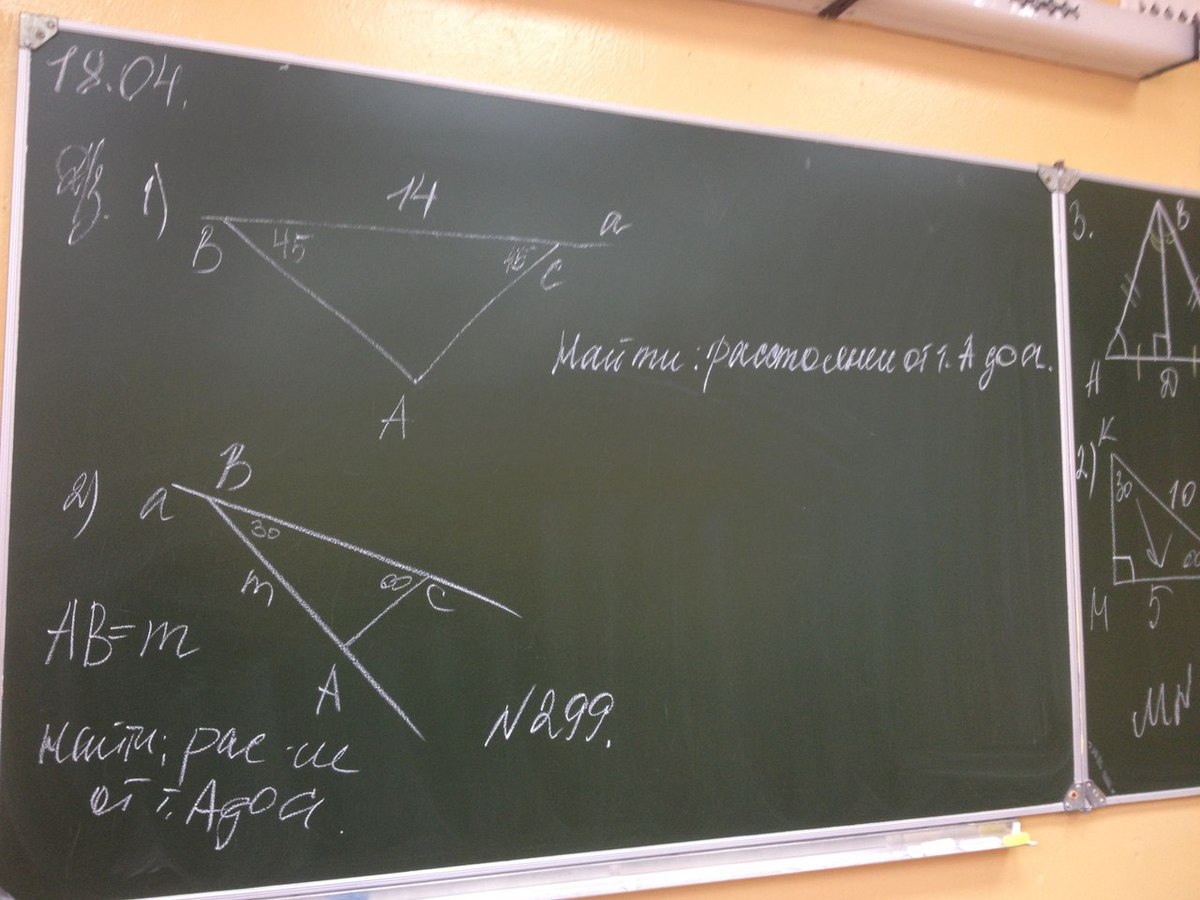 18.04.
1)
14
a
B
45
45
C
A
Найти: расстояние от т. А до а.
2)
B
a
30
m
C
AB=m
A
№299.
Найти: рас-ие
от т. А до а.
3.
B
A
D
2)
K
30
10
M
5
MN